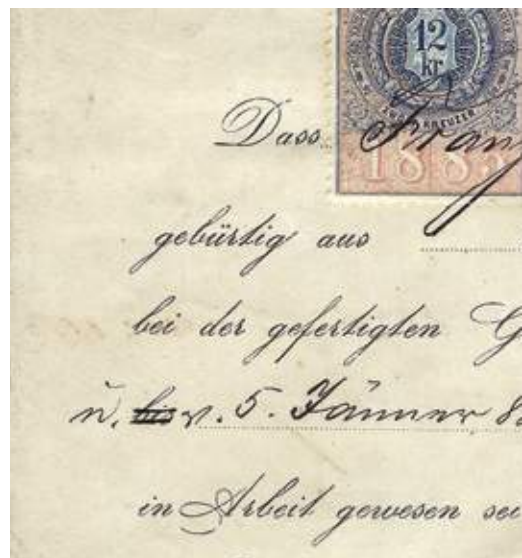 12
kr
ZWÖLF KREUZER
Dass Franz
1885
gebürtig aus
bei der gefertigten G
u. bis v. 5. Jänner 8
in Arbeit gewesen sei